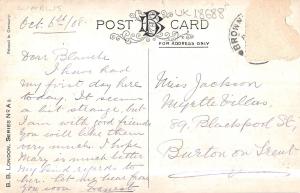 Oct 6th/08.
UK18688
POST B CARD
FOR ADDRESS ONLY.
BROWN
Printed in Germany.
B. B. LONDON. SERIES No A
Dear Blanche
I have had
my first day here
today. It seems
a bit strange, but
I am with good friends
you will like them
very much. I hope
Mary is much better
my kind regards to
her. let me hear from
you soon
Miss Jackson
Myrtle Villas,
89, Blackpool St,
Burton on Trent